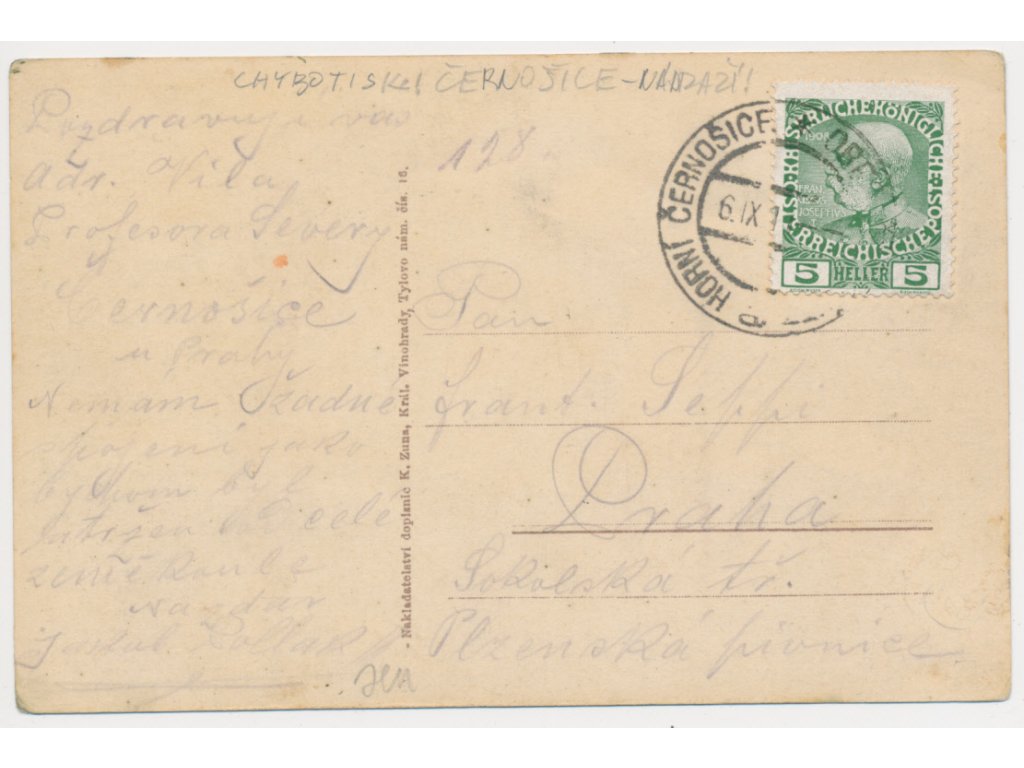 CHYBOTISK! ČERNOŠICE-NÁDRAŽÍ!
Pozdravuji vás
Adr. Vila
Profesora Severy
Černošice
u Prahy
Nemám žádné
spojení jako
bychom byl
od celé
zeměkoule
Nazdar
Pollak
128
- Nakladatelství dopisnic K. Zuna, Král. Vinohrady, Tylovo nám. čís. 16.
Pan
Frant. Seppi
Praha
Sokolská tř.
Plzenská pivnice
HORNÍ ČERNOŠICE
6.IX.1
KAISERLICHE KÖNIGLICHE ÖSTERREICHISCHE POST
1908
FRANCISCVS
JOSEPHVS I
5 HELLER 5